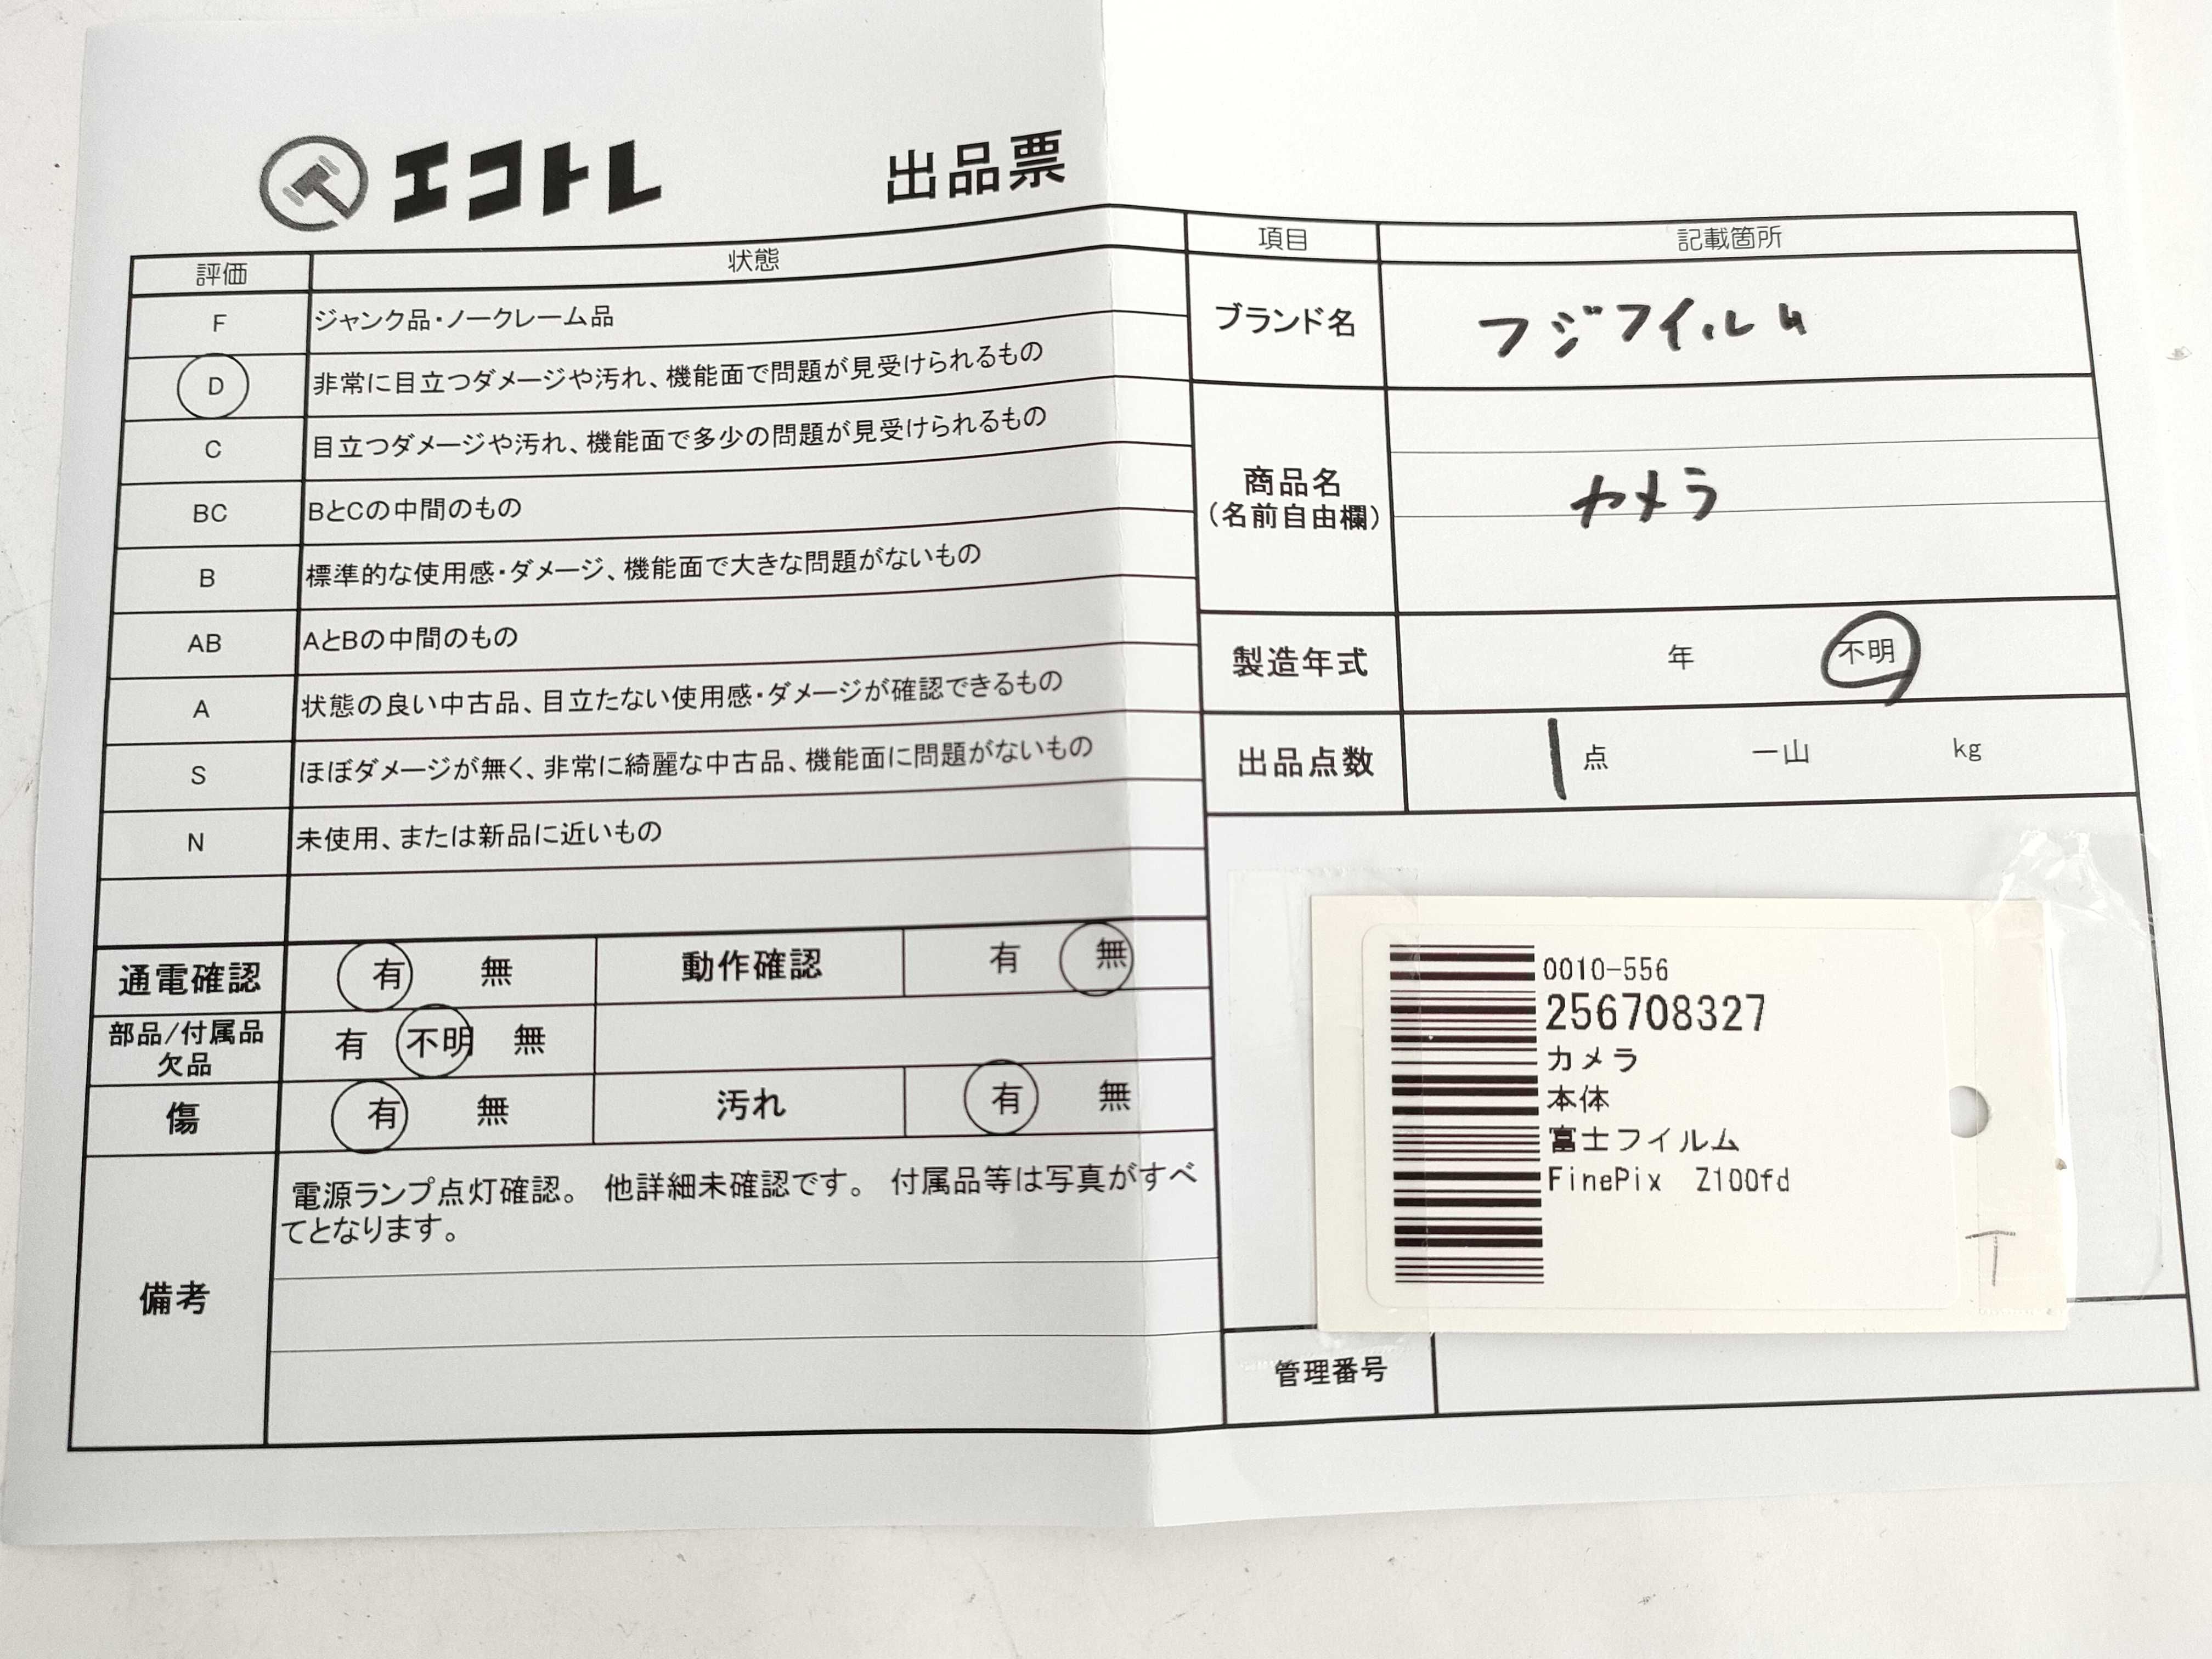 エコトレ 出品票
評価 状態
F ジャンク品・ノークレーム品
D 非常に目立つダメージや汚れ、機能面で問題が見受けられるもの
C 目立つダメージや汚れ、機能面で多少の問題が見受けられるもの
BC BとCの中間のもの
B 標準的な使用感・ダメージ、機能面で大きな問題がないもの
AB AとBの中間のもの
A 状態の良い中古品、目立たない使用感・ダメージが確認できるもの
S ほぼダメージが無く、非常に綺麗な中古品、機能面に問題がないもの
N 未使用、または新品に近いもの
通電確認 有 無 動作確認 有 無
部品/付属品
欠品 有 不明 無
傷 有 無 汚れ 有 無
備考
電源ランプ点灯確認。 他詳細未確認です。 付属品等は写真がすべ
てとなります。
項目 記載箇所
ブランド名 フジフイルム
商品名
(名前自由欄) カメラ
製造年式 年 不明
出品点数 1 点 一山 kg
0010-556
256708327
カメラ
本体
富士フイルム
FinePix Z100fd
T
管理番号